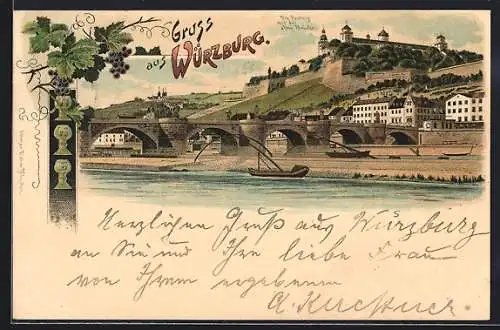 Gruss
aus
WÜRZBURG.
Die Festung
mit der
alten Brücke.
Herzlichen Gruß aus Würzburg
an Sie und Ihre liebe Frau
von Ihrem ergebenen